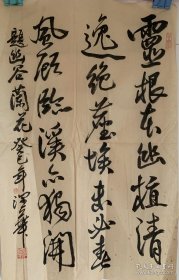 靈根本幽植清
逸絕塵埃未必春
風顧臨溪亦獨開
題幽谷蘭花癸巳年華